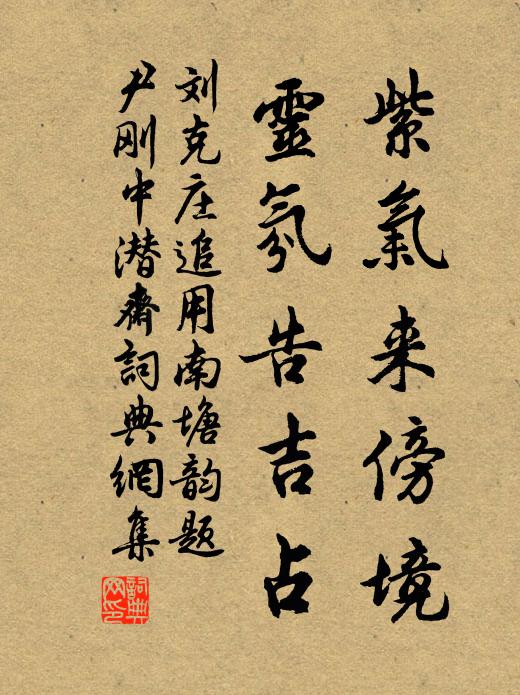 紫氣来傍境
靈氛告吉占
刘克庄追用南塘韵题
尹刚中潜齋詞典網集
詞典網印